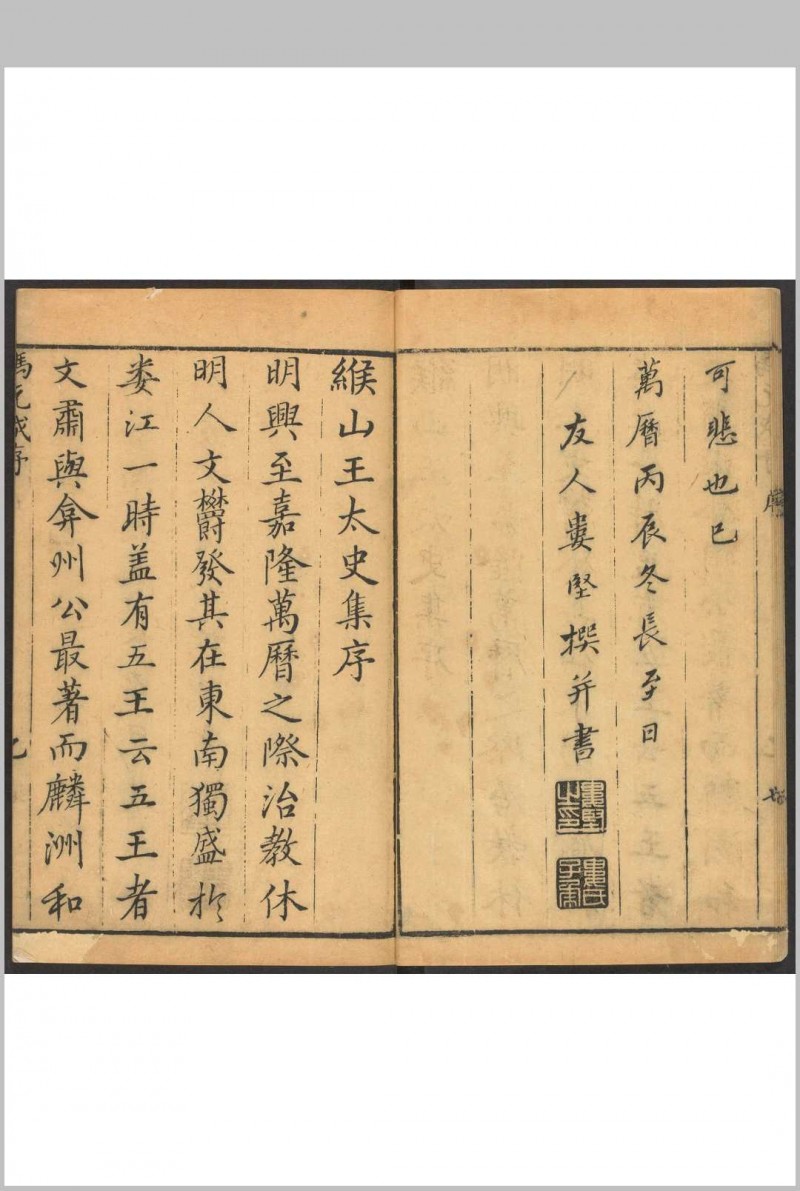 可悲也已
萬曆丙辰冬長至日
友人婁堅撰并書
婁堅之印
婁氏子柔
緱山王太史集序
明興至嘉隆萬曆之際治教休
明人文欝發其在東南獨盛於
娄江一時盖有五王云五王者
文肅與弇州公最著而麟洲和